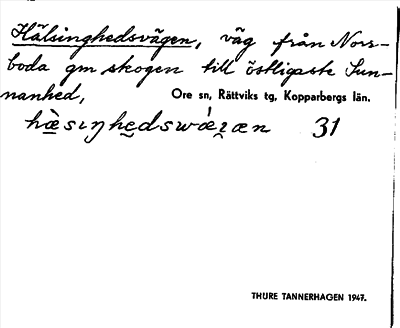 Hälsinghedsvägen, väg från Norr-
boda gm skogen till östligaste Sun-
nanhed, Ore sn, Rättviks tg, Kopparbergs län.
hæ̀sıŋhedswǽgæn 31
THURE TANNERHAGEN 1947.